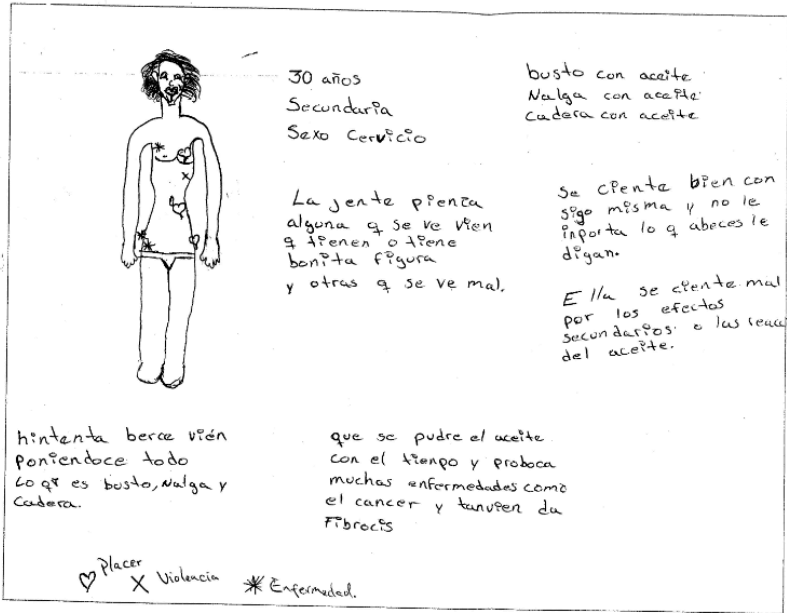 30 años
Secundaria
Sexo Cervicio
busto con aceite
Nalga con aceite
Cadera con aceite
La jente pienza
alguna q se ve vien
q tienen o tiene
bonita figura
y otras q se ve mal.
Se ciente bien con
sigo misma y no le
inporta lo q abeces le
digan.
Ella se ciente mal
por los efectos
secundarios o las reacc
del aceite.
hintenta berce vién
Poniendoce todo
Lo q es busto, Nalga y
Cadera.
que se pudre el aceite
con el tienpo y proboca
muchas enfermedades como
el cancer y tanvien da
Fibrocis
Placer
Violencia
Enfermedad.